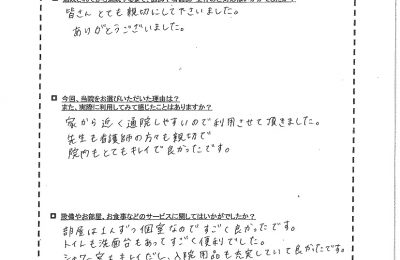 皆さん とても 親切にして下さいました。
ありがとうございました。
今回、当院をお選びいただいた理由は？
また、実際に利用してみて感じたことはありますか？
家から近く通院しやすいので利用させて頂きました。
先生も看護師の方々も親切で
院内もとてもキレイで良かったです。
設備やお部屋、お食事などのサービスに関してはいかがでしたか？
部屋は1人ずつ個室なのですごく良かったです。
トイレも洗面台もあってすごく便利でした。
シャワー室もキレイだし、入院用品も充実していて良かったです。